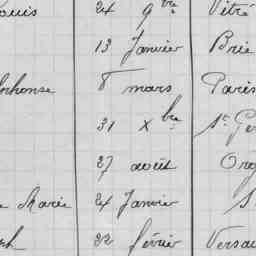 Louis 24 9bre Vitré
13 Janvier Brie
Alphonse 8 mars Paris
31 Xbre St Ger
27 août Org
e Marie 24 Janvier S
ph 22 février Versai